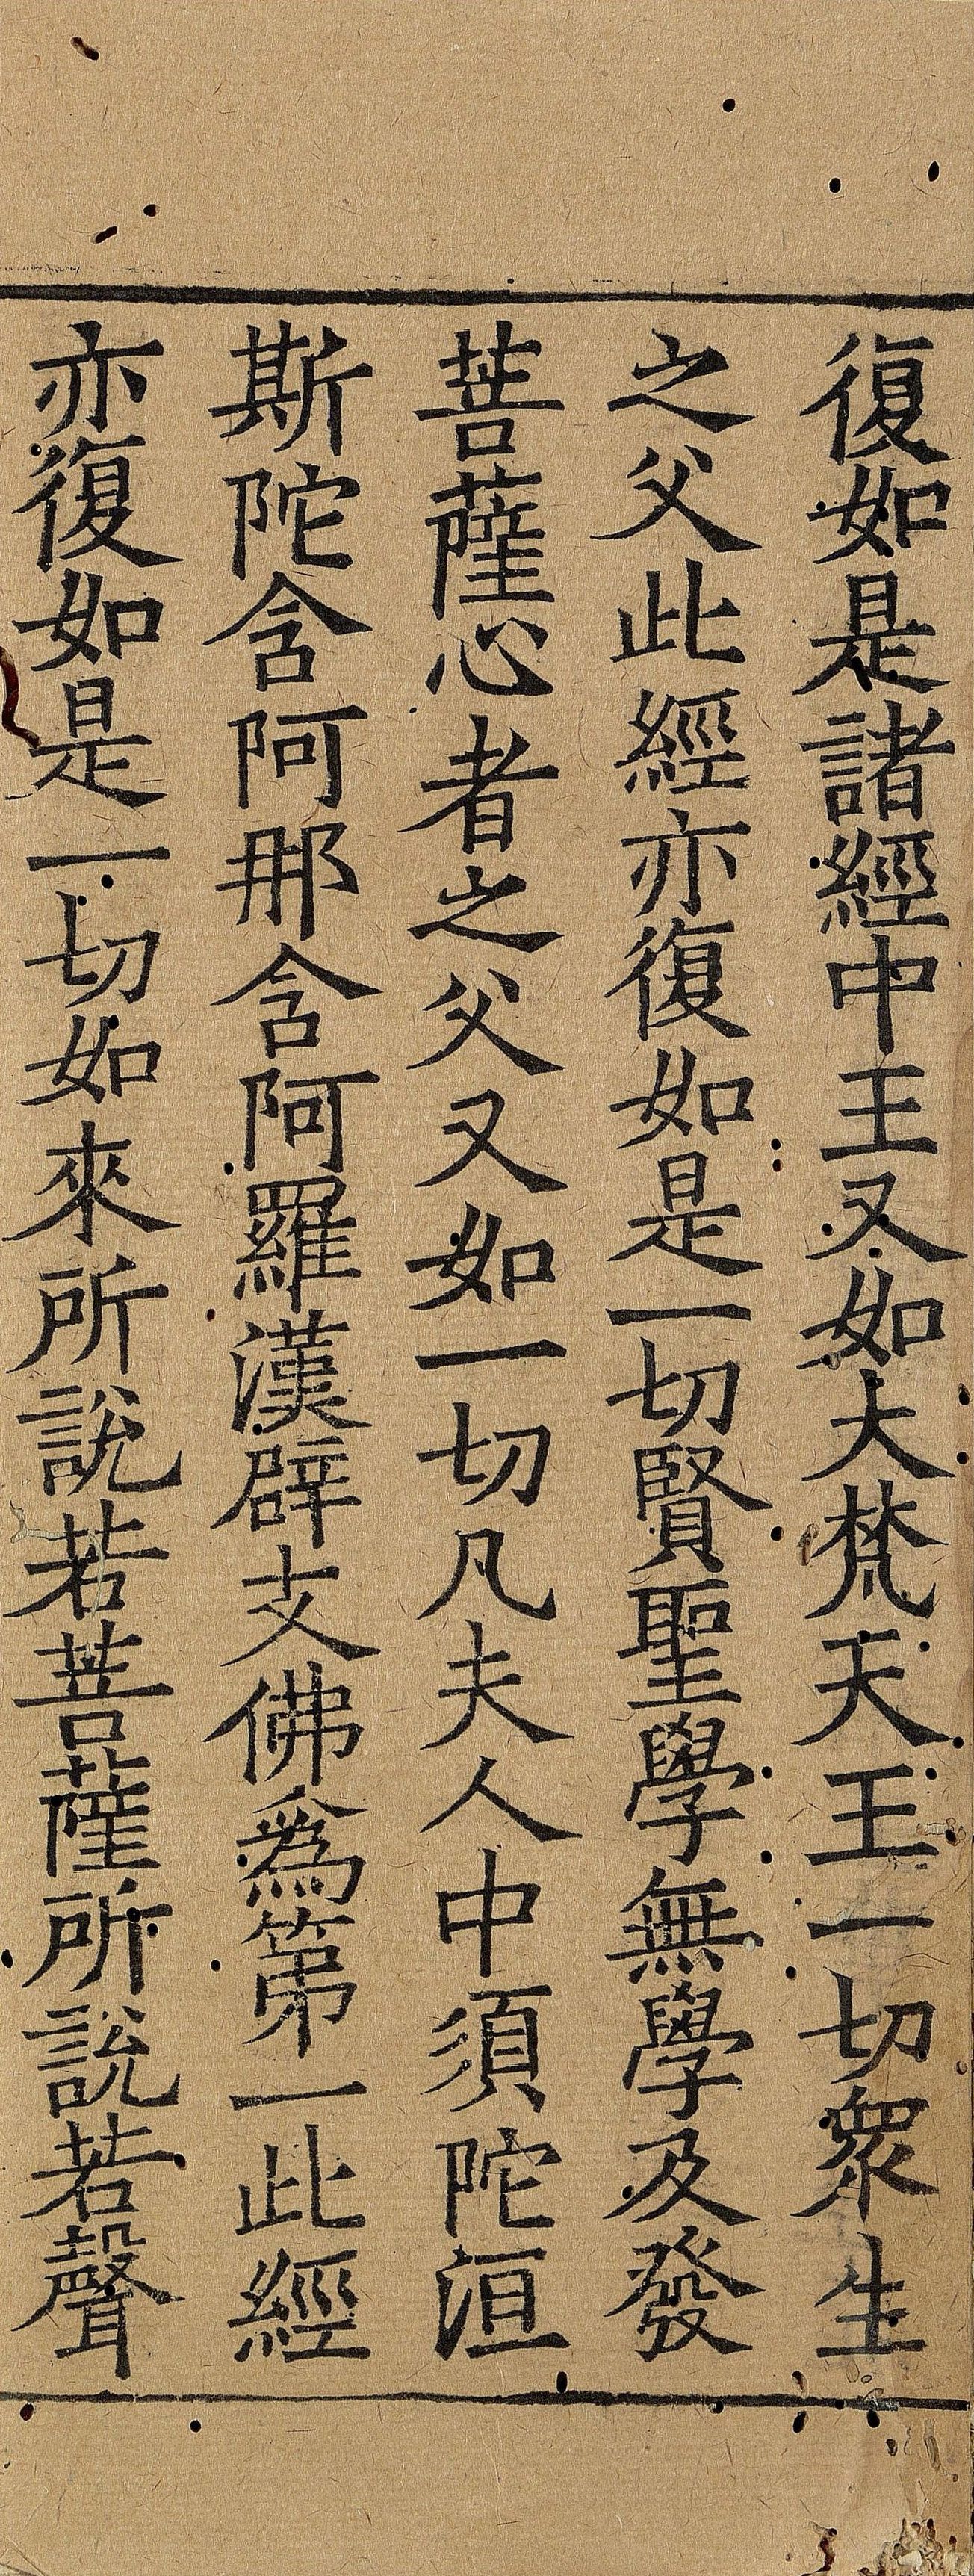 復如是諸經中王又如大梵天王一切衆生
之父此經亦復如是一切賢聖學無學及發
菩薩心者之父又如一切凡夫人中須陀洹
斯陀含阿那含阿羅漢辟支佛爲第一此經
亦復如是一切如來所說若菩薩所說若聲